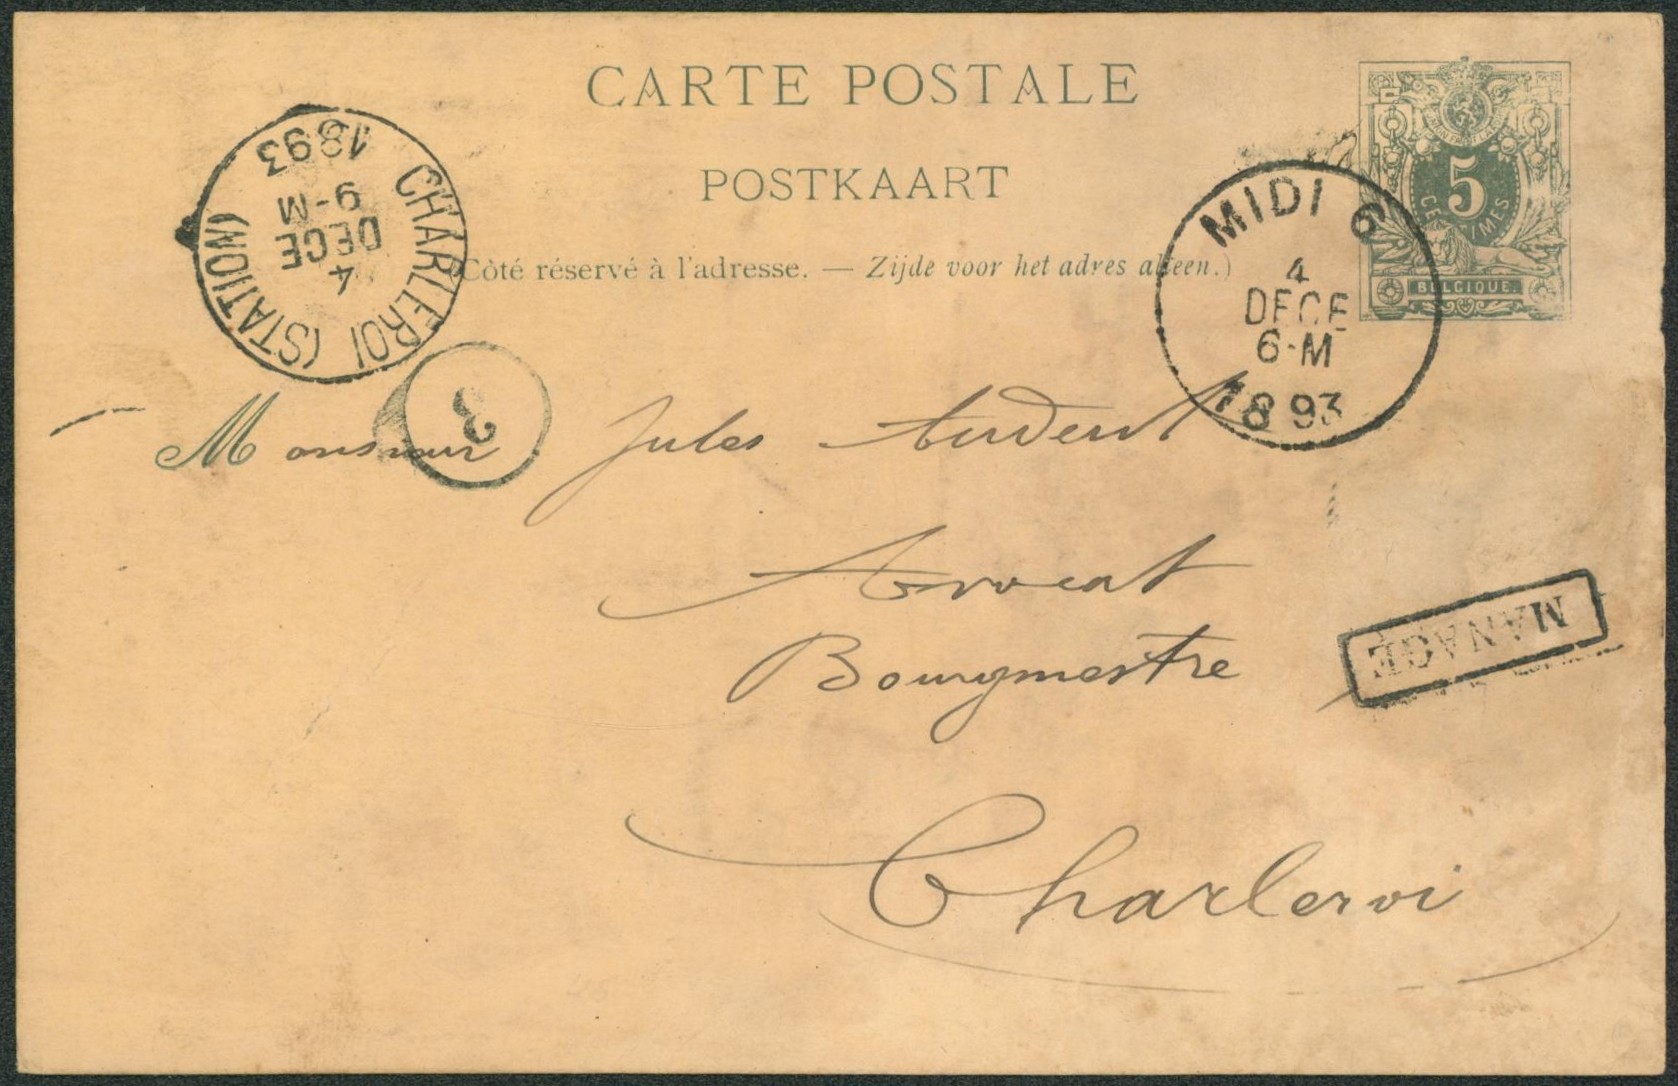 CARTE POSTALE
POSTKAART
(Côté réservé à l'adresse. — Zijde voor het adres alleen.)
5
CENTIMES
BELGIQUE.
MIDI 6
4
DECE
6-M
1893
CHARLEROI (STATION)
4
DECE
9-M
1893
3
Monsieur Jules Audent
Avocat
Bourgmestre
Charleroi
MANAGE